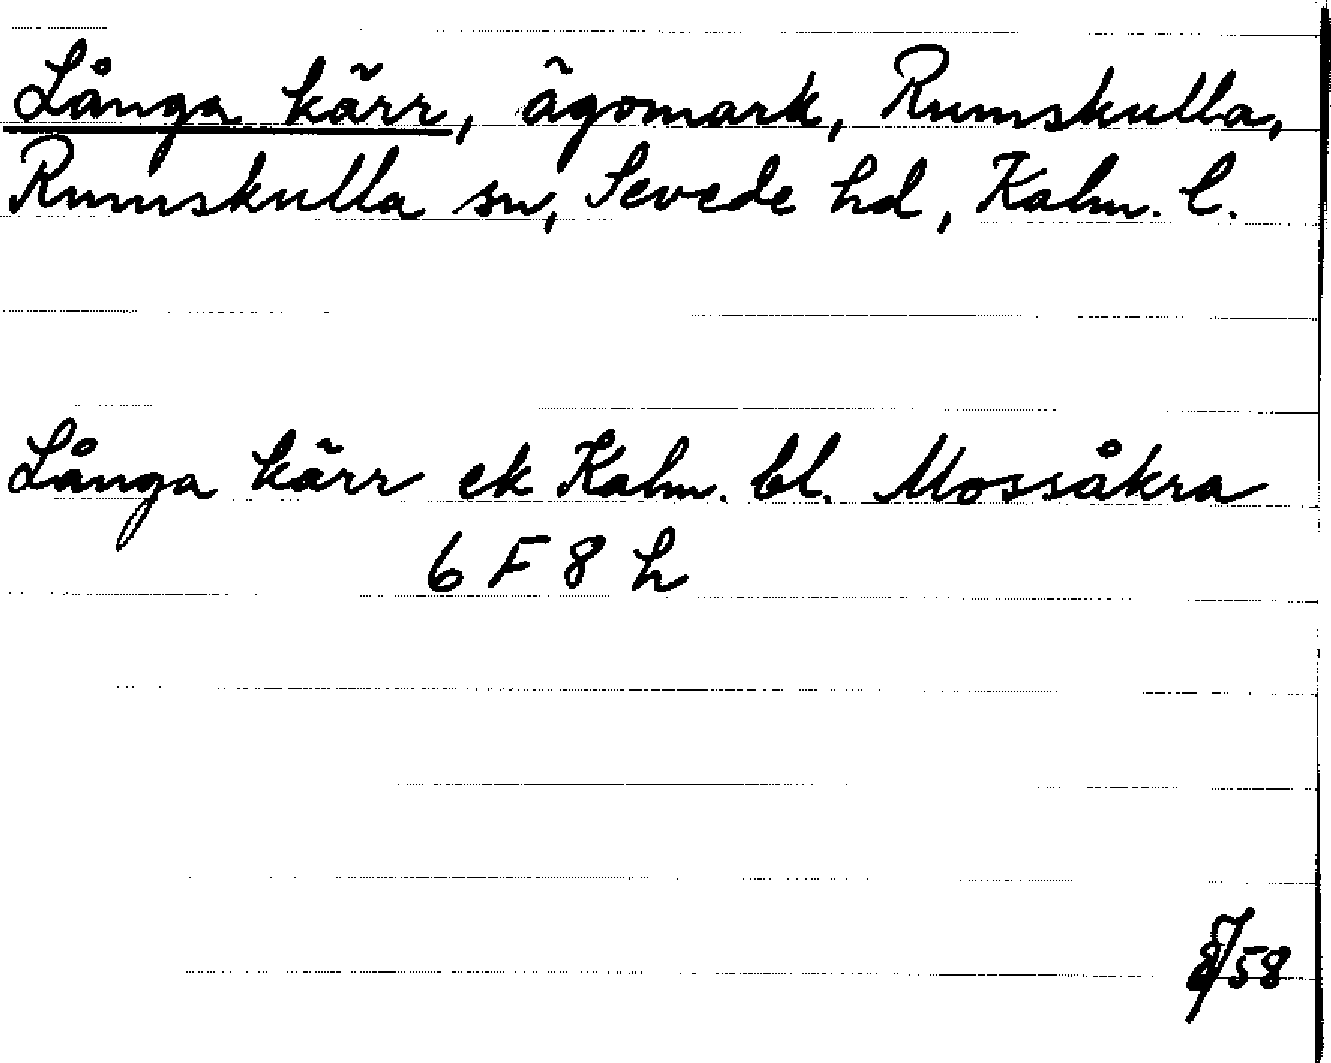 Långa kärr, ägomark, Rumskulla,
Rumskulla sn, Sevede hd, Kalm. l.
Långa kärr ek Kalm. bl. Mossåkra
6 F 8 h
8/58